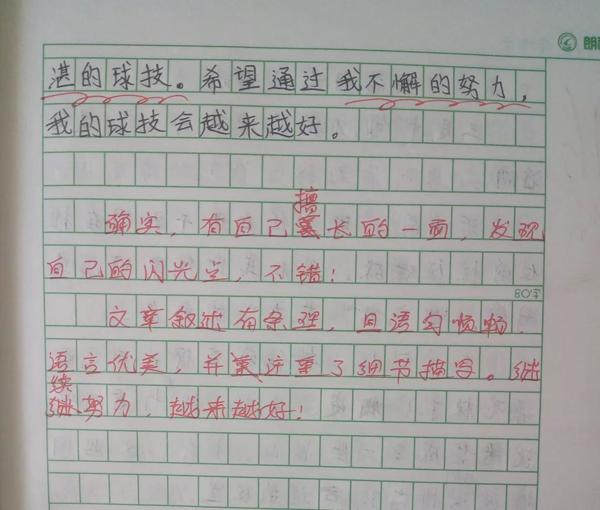 朗
湛的球技。希望通过我不懈的努力，
我的球技会越来越好。
擅
确实，有自己长的一面，发现
自己的闪光点，不错！
80字
文章叙述有条理，且语句顺畅，
语言优美，并注重了细节描写。继
续
努力，越来越好！